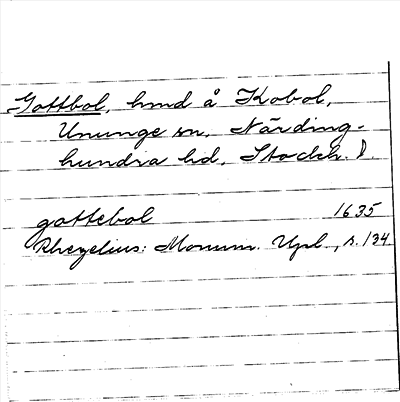 Gottbol, hmd å Kobol,
Ununge sn, Närding-
hundra hd, Stockh. l.
gottebol 1635
Rhezelius: Monum. Upl., s. 134